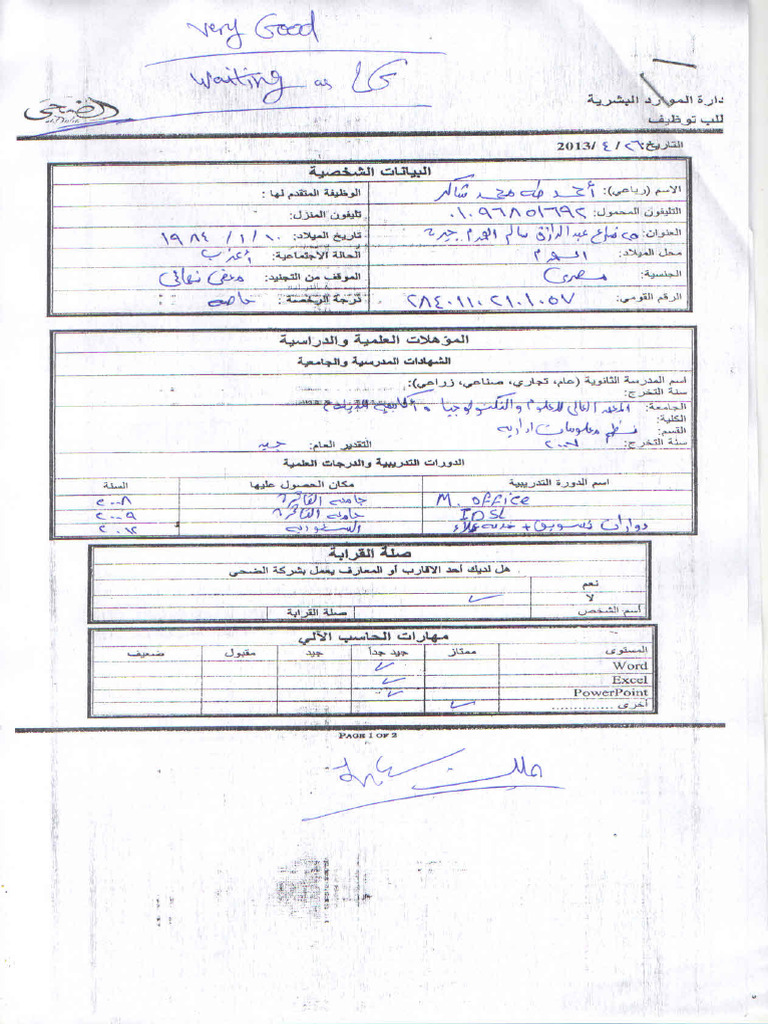 Very Good
Waiting as
الضحى
دارة الموارد البشرية
للب توظيف
التاريخ: ٢٦ / ٤ /2013
البيانات الشخصية
الاسم (رباعي): أحمد طه محمد شاكر
الوظيفة المتقدم لها :
التليفون المحمول: ٠١٠٩٦٨٥١٦٩٢
تليفون المنزل:
العنوان: ٢٥ شارع عبد الرازق سالم الهرم جيزة
تاريخ الميلاد: ١٠ / ١ / ١٩٨٤
محل الميلاد: الهرم
الحالة الاجتماعية: أعزب
الجنسية: مصرى
الموقف من التجنيد: معفى نهائى
الرقم القومي: ٢٨٤٠١١٠٢١٠١٠٥٧
درجة الرخصة: خاصة
المؤهلات العلمية والدراسية
الشهادات المدرسية والجامعية
اسم المدرسة الثانوية (عام، تجاري، صناعي، زراعي):
سنة التخرج:
الجامعة: المعهد العالى للعلوم والتكنولوجيا
الكلية:
القسم: نظم معلومات ادارية
سنة التخرج: ٢٠٠٧ التقدير العام: جيد
الدورات التدريبية والدرجات العلمية
اسم الدورة التدريبية مكان الحصول عليها السنة
M. office جامعة القاهرة ٢٠٠٨
ICDL جامعة القاهرة ٢٠٠٩
دوارات تسويق + خدمة عملاء السعودية ٢٠١٢
صلة القرابة
هل لديك أحد الاقارب أو المعارف يعمل بشركة الضحى
نعم
لا ✓
أسم الشخص صلة القرابة
مهارات الحاسب الآلي
المستوى ممتاز جيد جداً جيد مقبول ضعيف
Word ✓
Excel ✓
PowerPoint ✓
أخرى ............. ✓
PAGE 1 OF 2